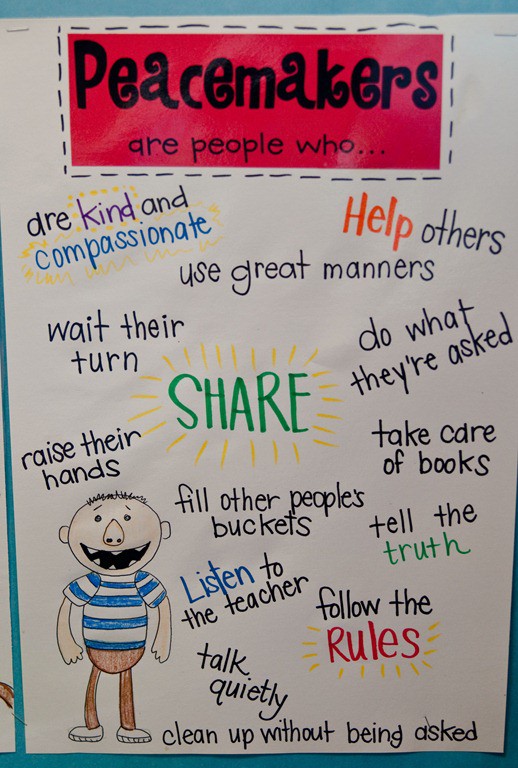 Peacemakers
are people who...
are kind and
compassionate
Help others
use great manners
wait their
turn
do what
they're asked
SHARE
raise their
hands
take care
of books
fill other people's
buckets
tell the
truth
Listen to
the teacher
follow the
RULES
talk
quietly
clean up without being asked